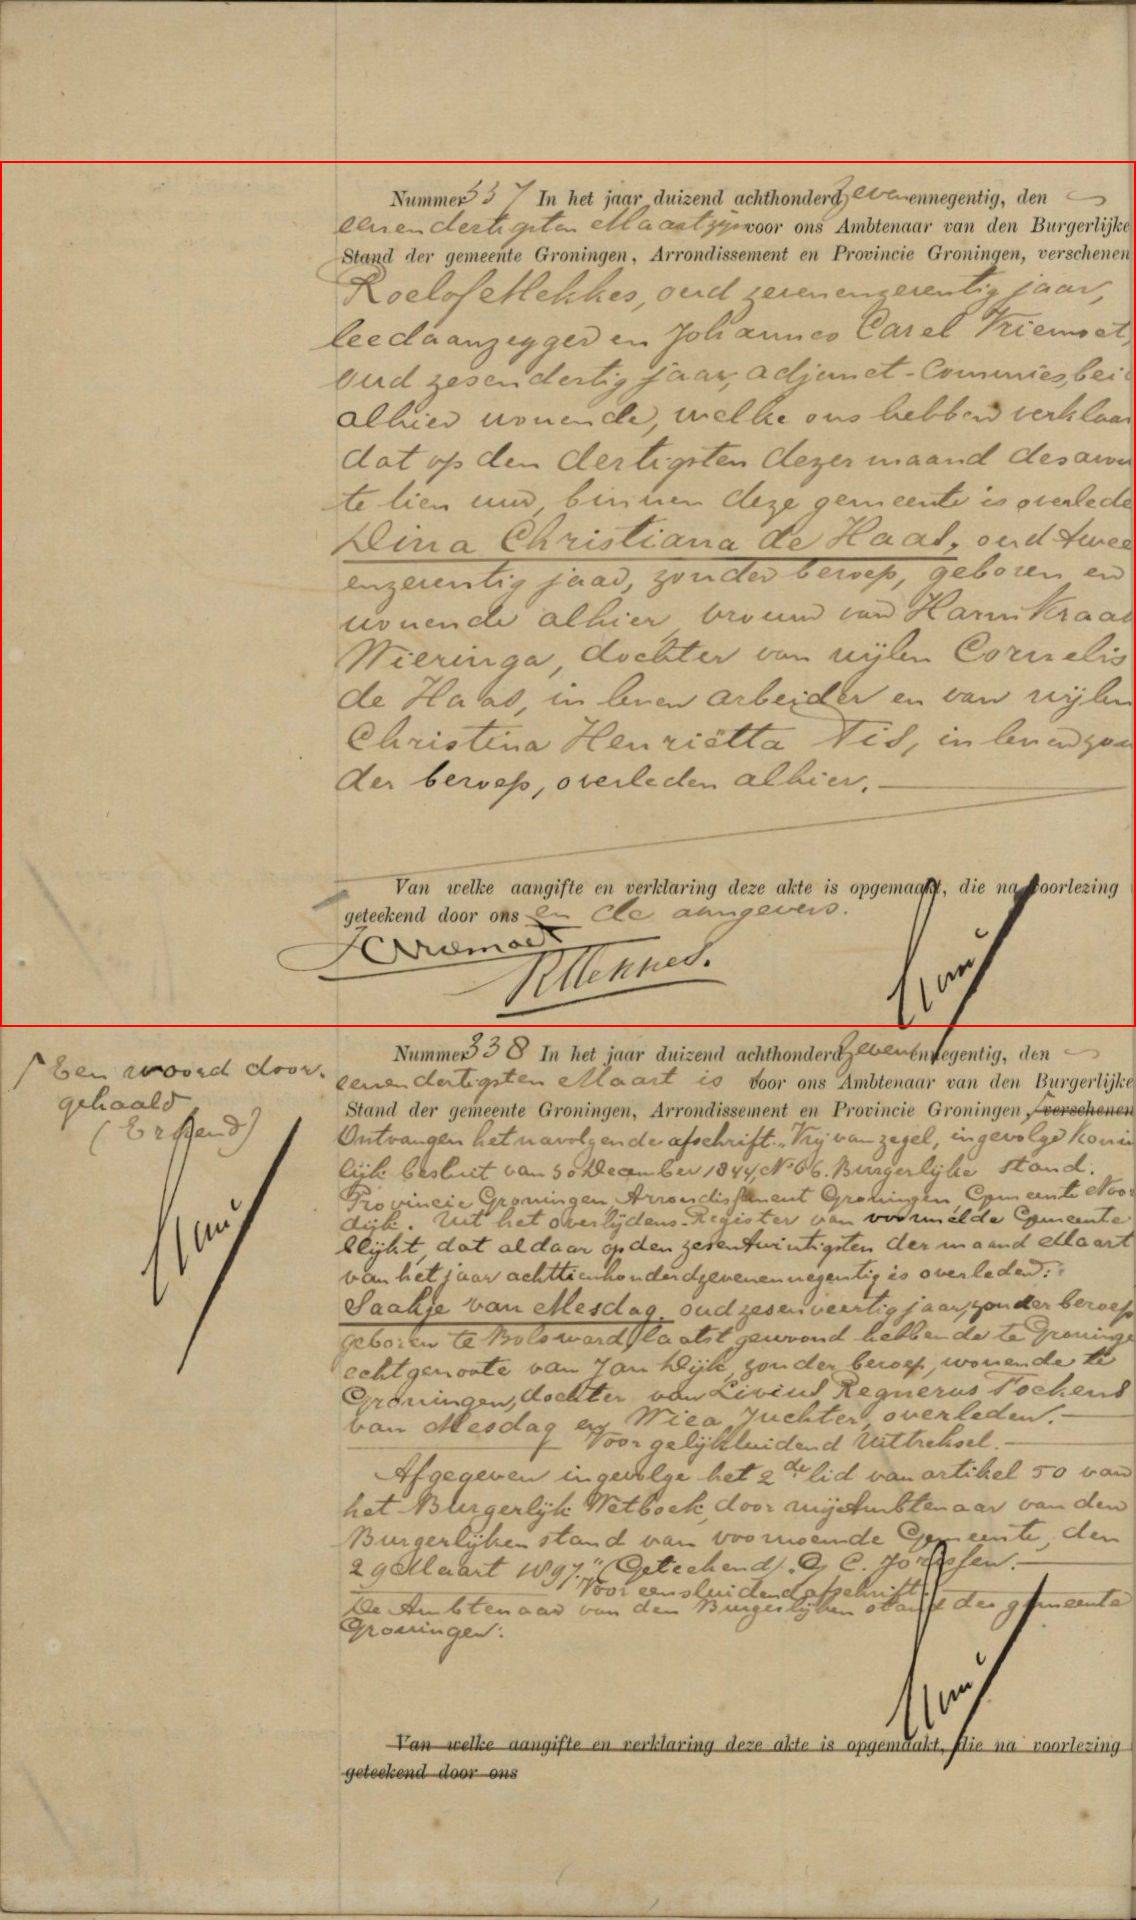 Nummer 337 In het jaar duizend achthonderd zevenennegentig, den
eenendertigsten Maart zijn voor ons Ambtenaar van den Burgerlijke
Stand der gemeente Groningen, Arrondissement en Provincie Groningen, verschenen
Roelof Mekkes, oud zevenenzeventig jaar,
leedaanzegger en Johannes Carel Vriemoet,
oud zesendertig jaar, adjunct-Commies, bei
alhier wonende, welke ons hebben verklaar
dat op den dertigsten dezer maand des avon
te tien uur, binnen deze gemeente is overlede
Dina Christiana de Haas, oud twee
enzeventig jaar, zonder beroep, geboren en
wonende alhier, vrouw van Harm Kraai
Wieringa, dochter van wijlen Cornelis
de Haas, in leven arbeider en van wijlen
Christina Henriëtta Tis, in leven zon
der beroep, overleden alhier.
Van welke aangifte en verklaring deze akte is opgemaakt, die na voorlezing
geteekend door ons en de aangevers.
JCVriemoet
RMekkes.
Nummer 338 In het jaar duizend achthonderd zevenennegentig, den
Een woord door-
gehaald
eenendertigsten Maart is voor ons Ambtenaar van den Burgerlijke
Stand der gemeente Groningen, Arrondissement en Provincie Groningen, verschenen
Ontvangen het navolgende afschrift. "Vrij van zegel, ingevolge Konin
lijk besluit van 30 December 1844, No 66. Burgerlijke stand.
Provincie Groningen, Arrondissement Groningen, Gemeente Noor
dijk. Uit het overlijdens-Register van voormelde Gemeente
blijkt, dat aldaar op den zesentwintigsten der maand Maart
van het jaar achttienhonderdzevenennegentig is overleden:
Saakje van Mesdag, oud zesenveertig jaar, zonder beroep
geboren te Bolsward, laatst gewoond hebbende te Groninge
echtgenoote van Jan Dijk, zonder beroep, wonende te
Groningen, dochter van Livius Regnerus Fockens
van Mesdag en Wiea Juchter, overleden.
Voor gelijkluidend Uittreksel.
Afgegeven ingevolge het 2de lid van artikel 50 van
het Burgerlijk Wetboek, door mij Ambtenaar van den
Burgerlijken stand van voornoemde Gemeente, den
29 Maart 1897." (Geteekend) G C. Jorissen.
Voor eensluidend afschrift.
De Ambtenaar van den Burgerlijken stand der gemeente
Groningen:
Van welke aangifte en verklaring deze akte is opgemaakt, die na voorlezing
geteekend door ons